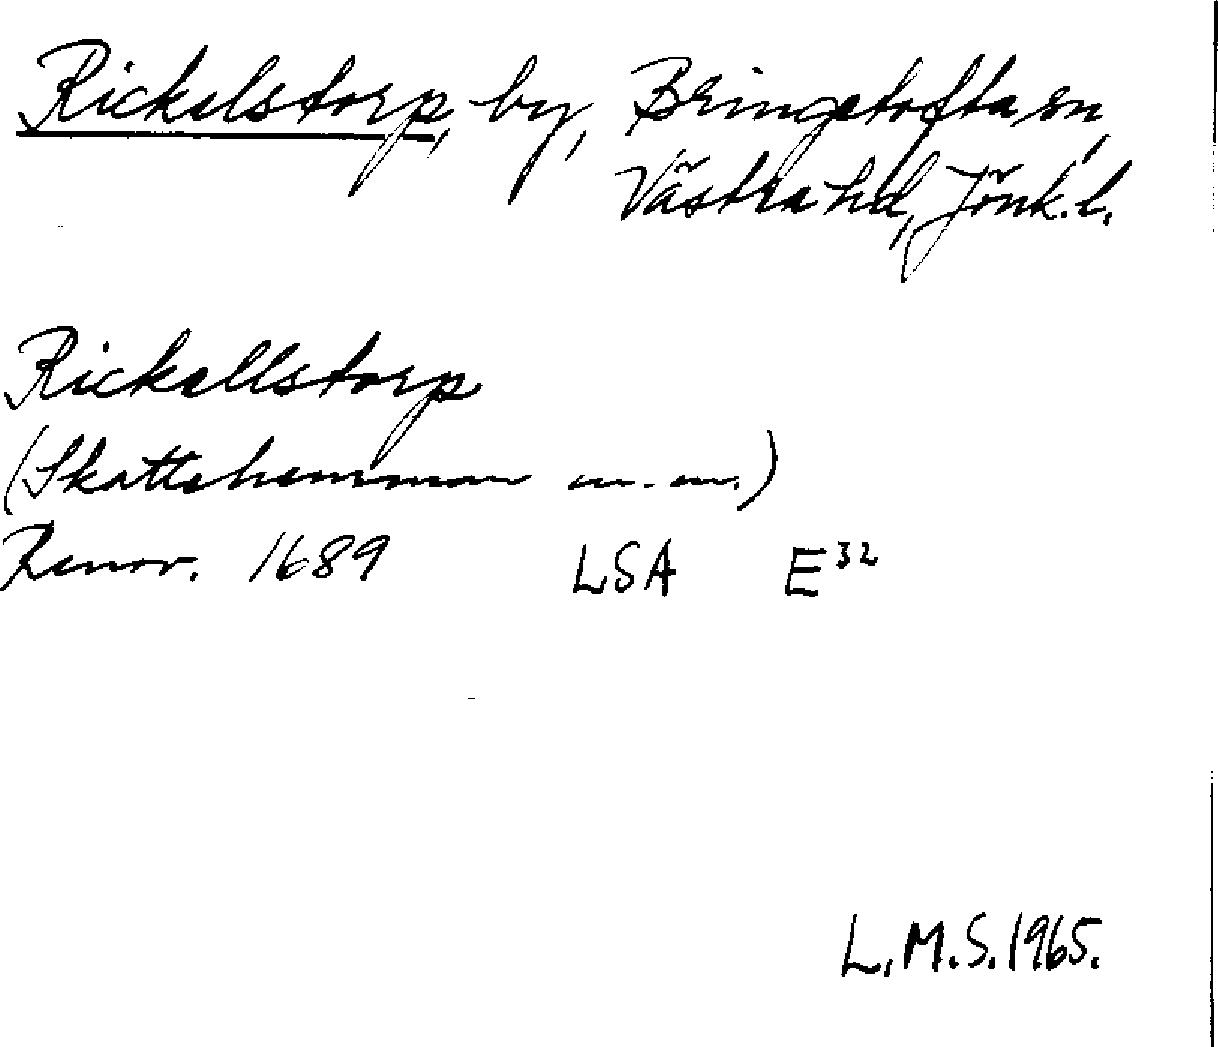 Rickelstorp, by, Bringetofta sn,
Västra hd, Jönk. l.
Rickellstorp
(Skattehemman m.m.)
Renov. 1689 LSA E³²
L.M.S. 1965.